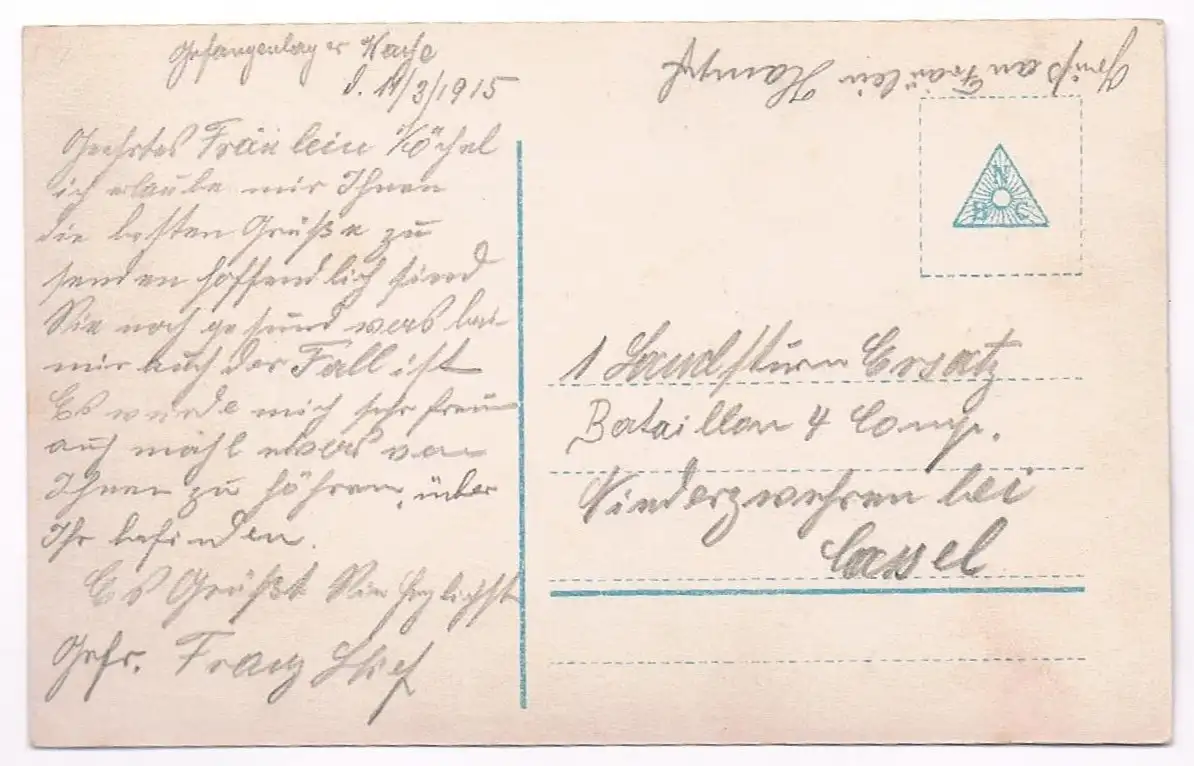 Gefangenlager Wache
d. 11/3/1915
Geehrtes Fräulein Köchel
ich erlaube mir Ihnen
die besten Grüße zu
senden hoffendlich sind
Sie noch gesund was bei
mir auch der Fall ist
Es wurde mich sehr freun
auch mahl etwas von
Ihnen zu höhren, über
Ihr befinden.
Es Grüßt Sie herzlichst
Gefr. Franz
Gruß an Fräulein
N
B C
1 Landsturm Ersatz
Bataillon 4 Comp.
Niederzwehren bei
Cassel